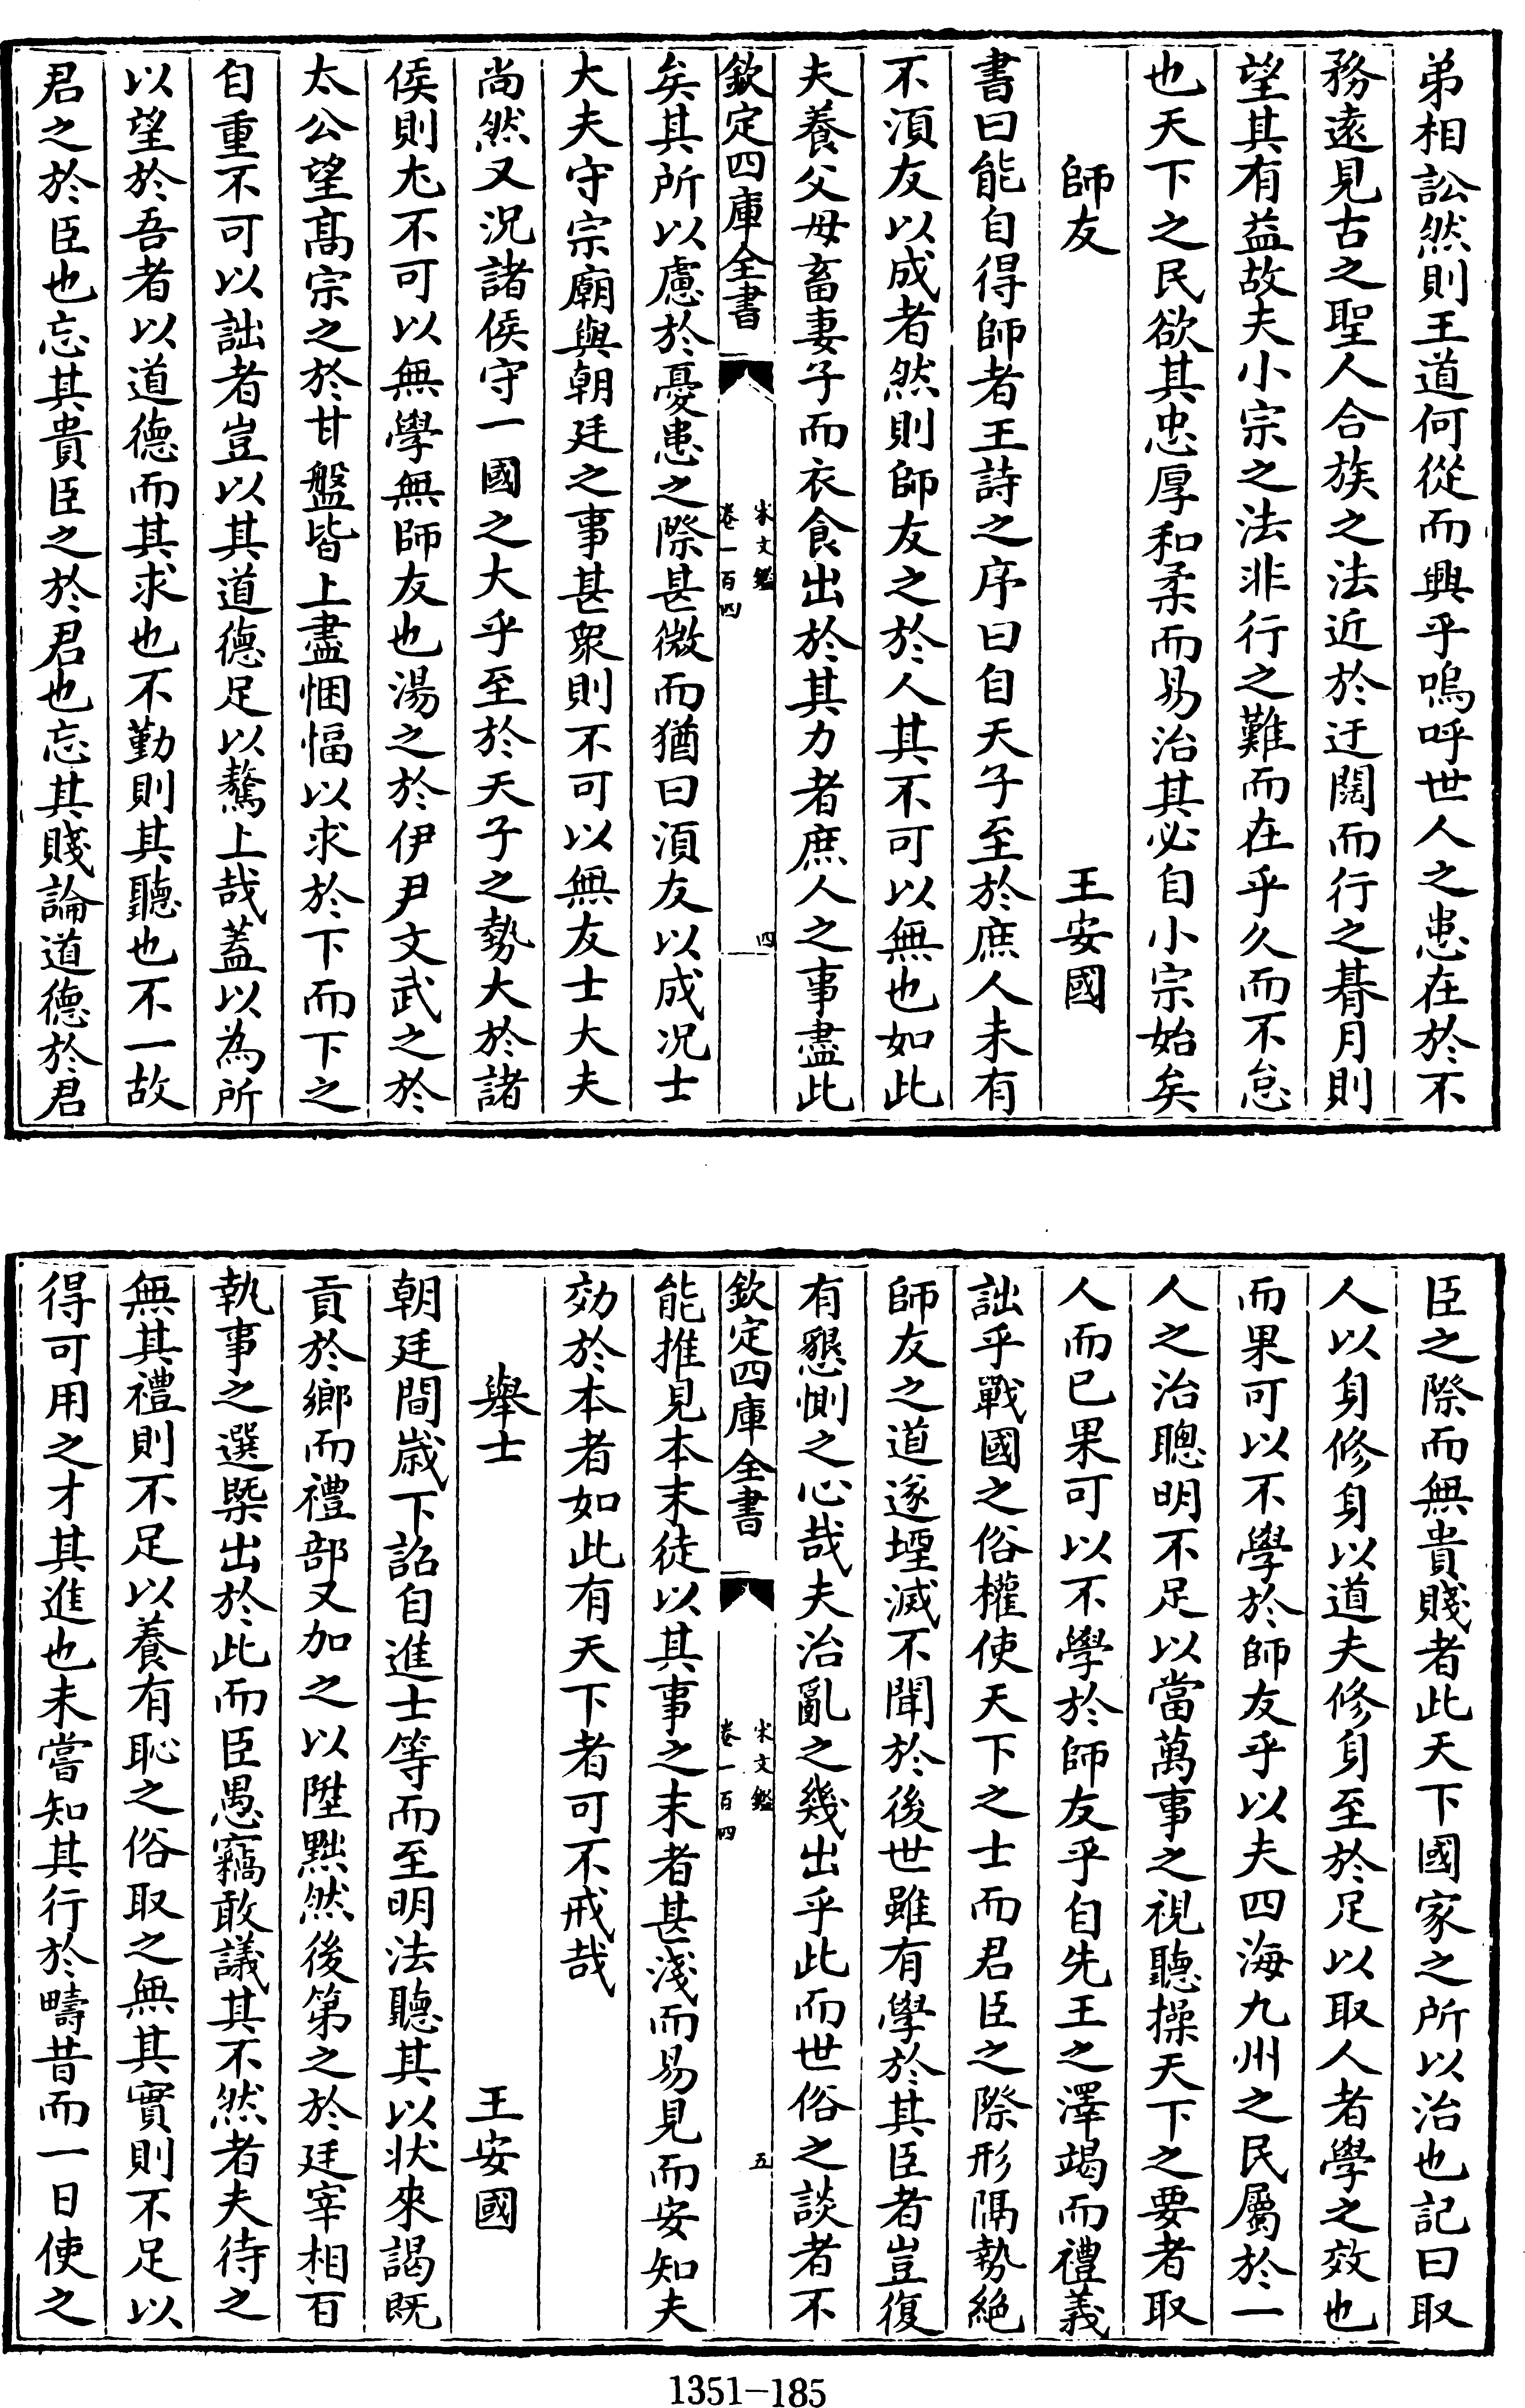 弟相訟然則王道何從而興乎嗚呼世人之患在於不
務逺見古之聖人合族之法近於迂闊而行之朞月則
望其有益故夫小宗之法非行之難而在乎久而不怠
也天下之民欲其忠厚和柔而易治其必自小宗始矣
師友　王安國
書曰能自得師者王詩之序曰自天子至於庶人未有
不須友以成者然則師友之於人其不可以無也如此
夫養父母畜妻子而衣食出於其力者庶人之事盡此
欽定四庫全書　宋文鑑卷一百四　四
矣其所以慮於憂患之際甚微而猶曰須友以成况士
大夫守宗廟與朝廷之事甚衆則不可以無友士大夫
尚然又况諸侯守一國之大乎至於天子之勢大於諸
侯則尤不可以無學無師友也湯之於伊尹文武之於
太公望髙宗之於甘盤皆上盡悃愊以求於下而下之
自重不可以詘者豈以其道德足以驁上哉蓋以為所
以望於吾者以道德而其求也不勤則其聽也不一故
君之於臣也忘其貴臣之於君也忘其賤論道德於君
臣之際而無貴賤者此天下國家之所以治也記曰取
人以身修身以道夫修身至於足以取人者學之效也
而果可以不學於師友乎以夫四海九州之民屬於一
人之治聰明不足以當萬事之視聽操天下之要者取
人而已果可以不學於師友乎自先王之澤竭而禮義
詘乎戰國之俗權使天下之士而君臣之際形隔勢絶
師友之道遂堙滅不聞於後世雖有學於其臣者豈復
有懇惻之心哉夫治亂之幾出乎此而世俗之談者不
欽定四庫全書　宋文鑑卷一百四　五
能推見本末徒以其事之末者甚淺而易見而安知夫
効於本者如此有天下者可不戒哉
舉士　王安國
朝廷間歳下詔自進士等而至明法聽其以狀來謁既
貢於鄉而禮部又加之以陞黜然後第之於廷宰相百
執事之選槩出於此而臣愚竊敢議其不然者夫待之
無其禮則不足以養有恥之俗取之無其實則不足以
得可用之才其進也未嘗知其行於疇昔而一日使之
1351-185